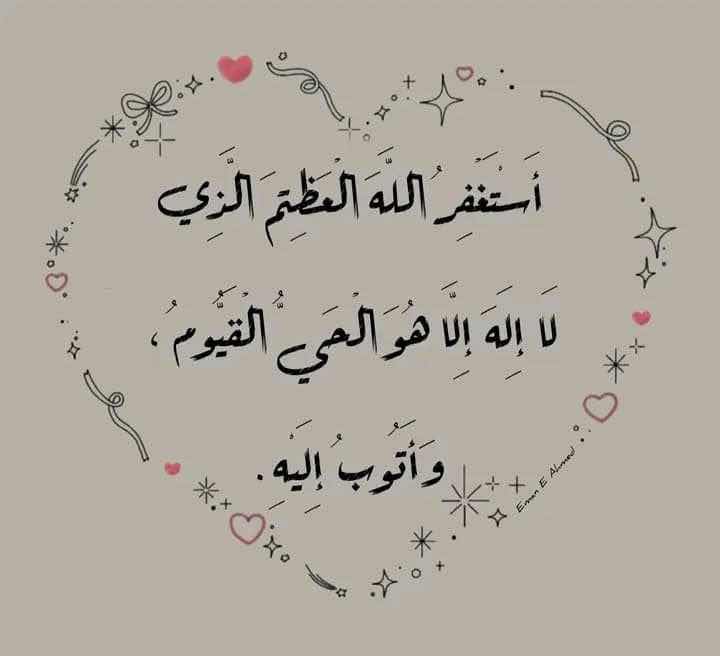 أَسْتَغْفِرُ اللَّهَ الْعَظِيمَ الَّذِي
لَا إِلَهَ إِلَّا هُوَ الْحَيُّ الْقَيُّومُ ،
وَأَتُوبُ إِلَيْهِ .
Eman E Ahmed